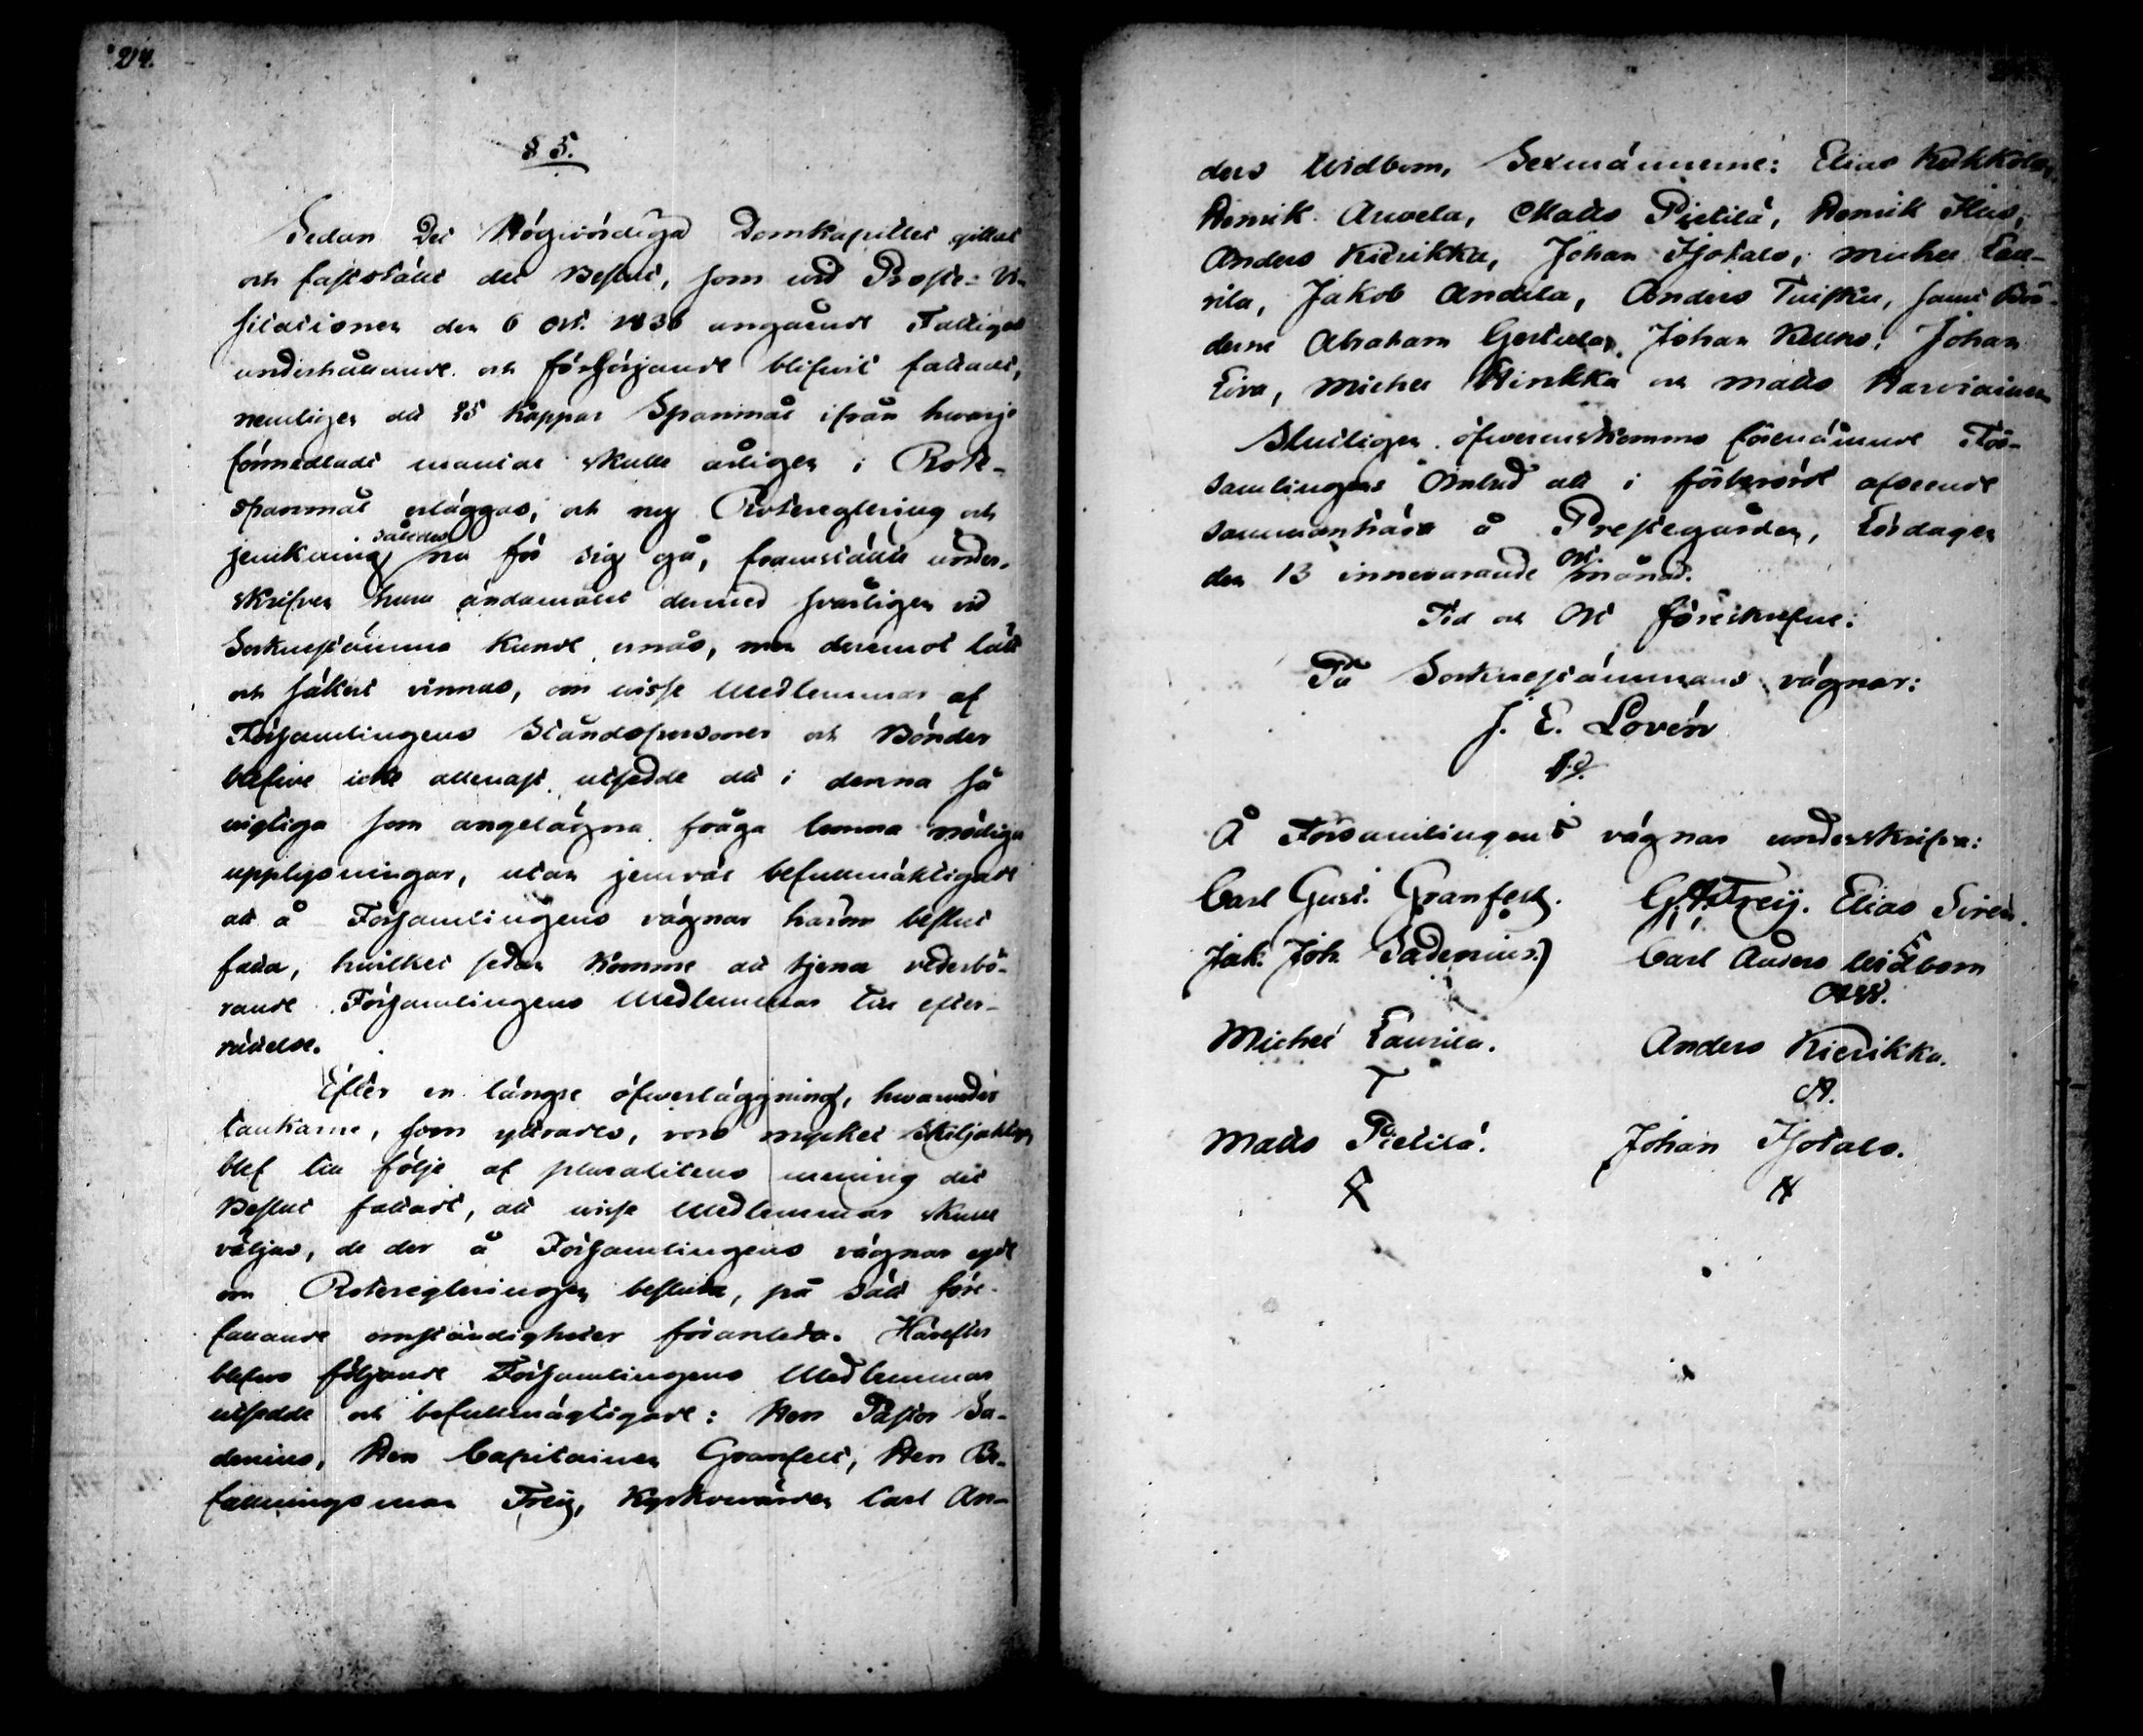 214.
§ 5.
Sedan Det Högwördiga Domkapitlet gillat
och fastställt det Beslut, som wid Prosts-Vi-
sitationen den 6 Oct. 1836 angående Fattigas
underhållande och försörjande blifvit fattadt,
nemligen att 15 kappar Spanmål ifrån hwarje
förmedladt mantal skulle årligen i Rote-
spanmål erläggas, och ny Rotereglering och
således
jemkning nu för sig gå, framställde under-
skrifven huru ändamålet dermed svårligen vid
Socknestämma kunde ernås, men deremot lätt
och säkert vinnas, om wisse Medlemmar af
Församlingens Ståndspersoner och Bönder
blefwe icke allenast utsedde att i denna så
wigtiga som angelägna fråga lemna nödiga
upplysningar, utan jemväl befullmäktigade
att å Församlingens vägnar härom beslut
fatta, hwilket sedan komme att tjena vederbö-
rande Församlingens Medlemmar till efter-
rättelse.
Efter en längre öfwerläggning, hwarunder
tankarne, som yttrades, voro mycket skiljaktige,
blef till följe af pluralitetens mening det
Beslut fattadt, att wisse Medlemmar skulle
väljas, de der å Församlingens vägnar egde
om Roteregleringen besluta, på sätt före-
fallande omständigheter föranleda. Härefter
blefwo följande Församlingens Medlemmar
utsedde och befullmägtigade: Herr Pastor Sa-
denius, Herr Capitainen Granfelt, Herr Be-
fallningsman Freij, Kyrkowärden Carl An-
ders Widbom, Sexmännerne: Elias Kukkola,
Henrik Arwela, Matts Pietilä, Henrik
Anders Kierikka, Johan Isotalo, Michel Lau-
rila, Jakob Andila, Anders Tuisku, samt Bön-
derne Abraham Johan Johan
Michel Hinkka och Matts Harviainen
Slutligen öfwerenskommo förenämnde För-
samlingens Ombud att i förberörde afseende
sammanträda å Prestegården, Lördagen
Oct.
den 13 innevarande månad.
Tid och Ort föreskrefne:
På Sockenestämmans vägnar:
J. E. Lovén
Å Församlingens vägnar underskrifva:
Carl Gust. Granfelt. G. A. Freij. Elias Sirén.
Jak. Joh. Sadenius.) Carl Anders Widbom
Michel Laurila. Anders Kierikka.
Matts Pietilä. Johan Isotalo.